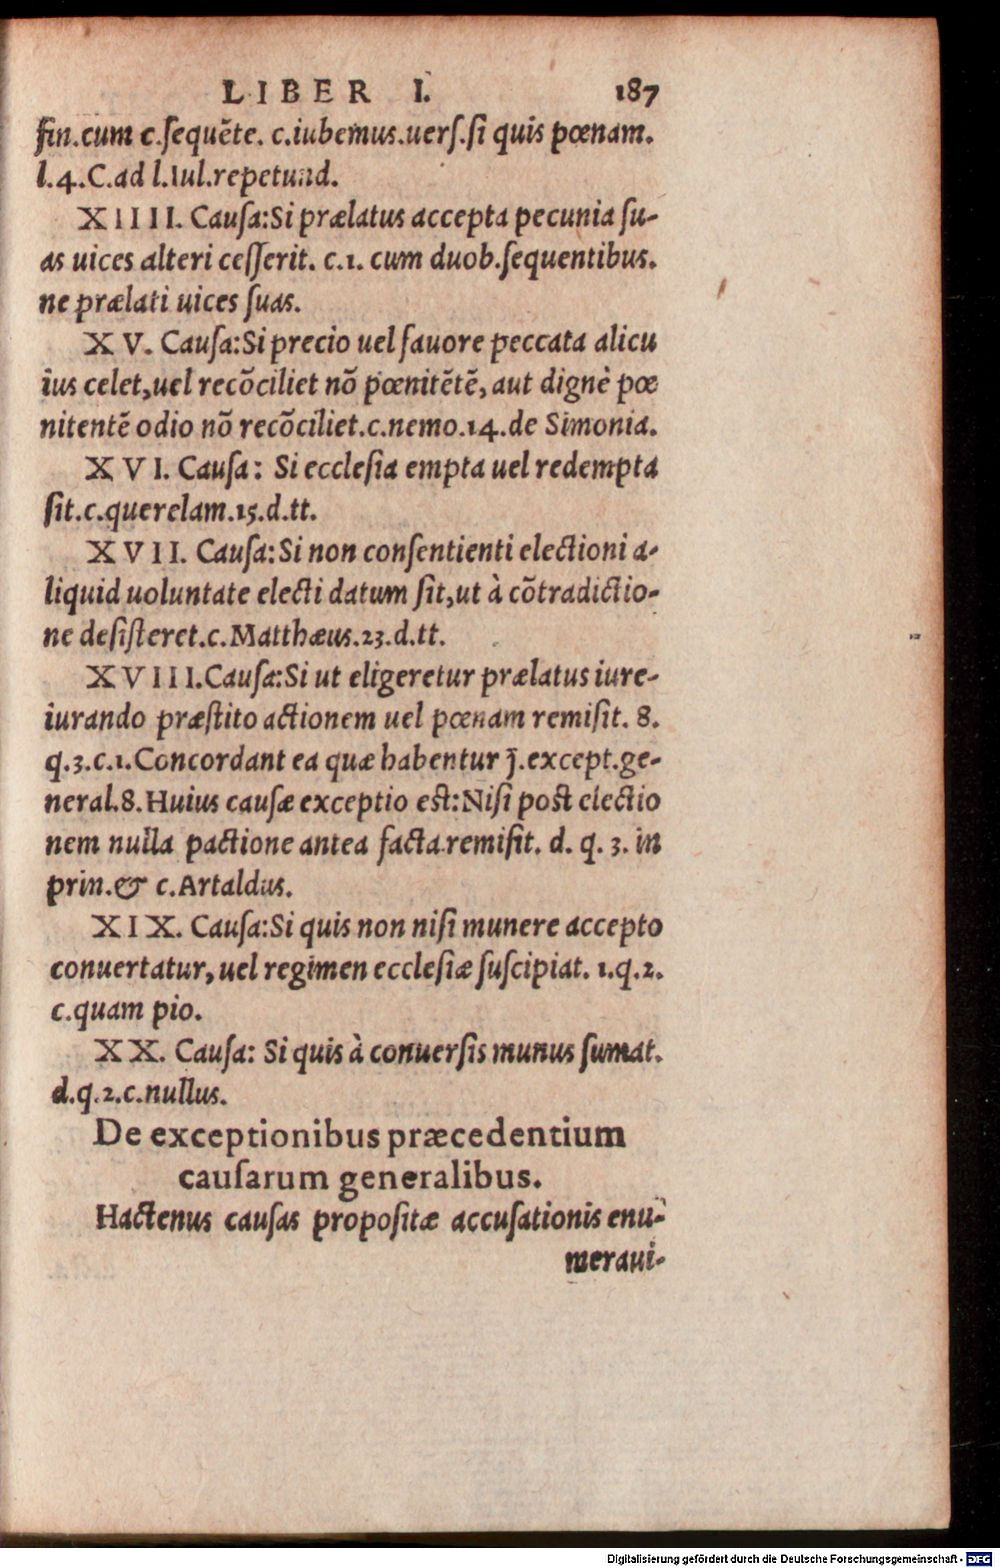 LIBER I. 187
fin.cum c.ſequẽte. c.iubemus.uerſ.ſi quis pœnam.
l.4.C.ad l.Iul.repetund.
XIIII. Cauſa:Si prælatus accepta pecunia ſu-
as uices alteri ceſſerit. c.1. cum duob.ſequentibus.
ne prælati uices ſuas.
XV. Cauſa:Si precio uel fauore peccata alicu
ius celet,uel recõciliet nõ pœnitẽtẽ, aut dignè pœ
nitentẽ odio nõ recõciliet.c.nemo.14.de Simonia.
XVI. Cauſa: Si eccleſia empta uel redempta
ſit.c.querelam.15.d.tt.
XVII. Cauſa:Si non conſentienti electioni a-
liquid uoluntate electi datum ſit,ut à cõtradictio-
ne deſiſteret.c.Matthæus.23.d.tt.
XVIII.Cauſa:Si ut eligeretur prælatus iure-
iurando præſtito actionem uel pœnam remiſit. 8.
q.3.c.1.Concordant ea quæ habentur j̄.except.ge-
neral.8.Huius cauſæ exceptio eſt:Niſi poſt electio
nem nulla pactione antea facta remiſit. d. q. 3. in
prin.& c.Artaldus.
XIX. Cauſa:Si quis non niſi munere accepto
conuertatur,uel regimen eccleſiæ ſuſcipiat. 1.q.2.
c.quam pio.
XX. Cauſa: Si quis à conuerſis munus ſumat.
d.q.2.c.nullus.
De exceptionibus præcedentium
cauſarum generalibus.
Hactenus cauſas propoſitæ accuſationis enu-
meraui-
Digitalisierung gefördert durch die Deutsche Forschungsgemeinschaft - DFG